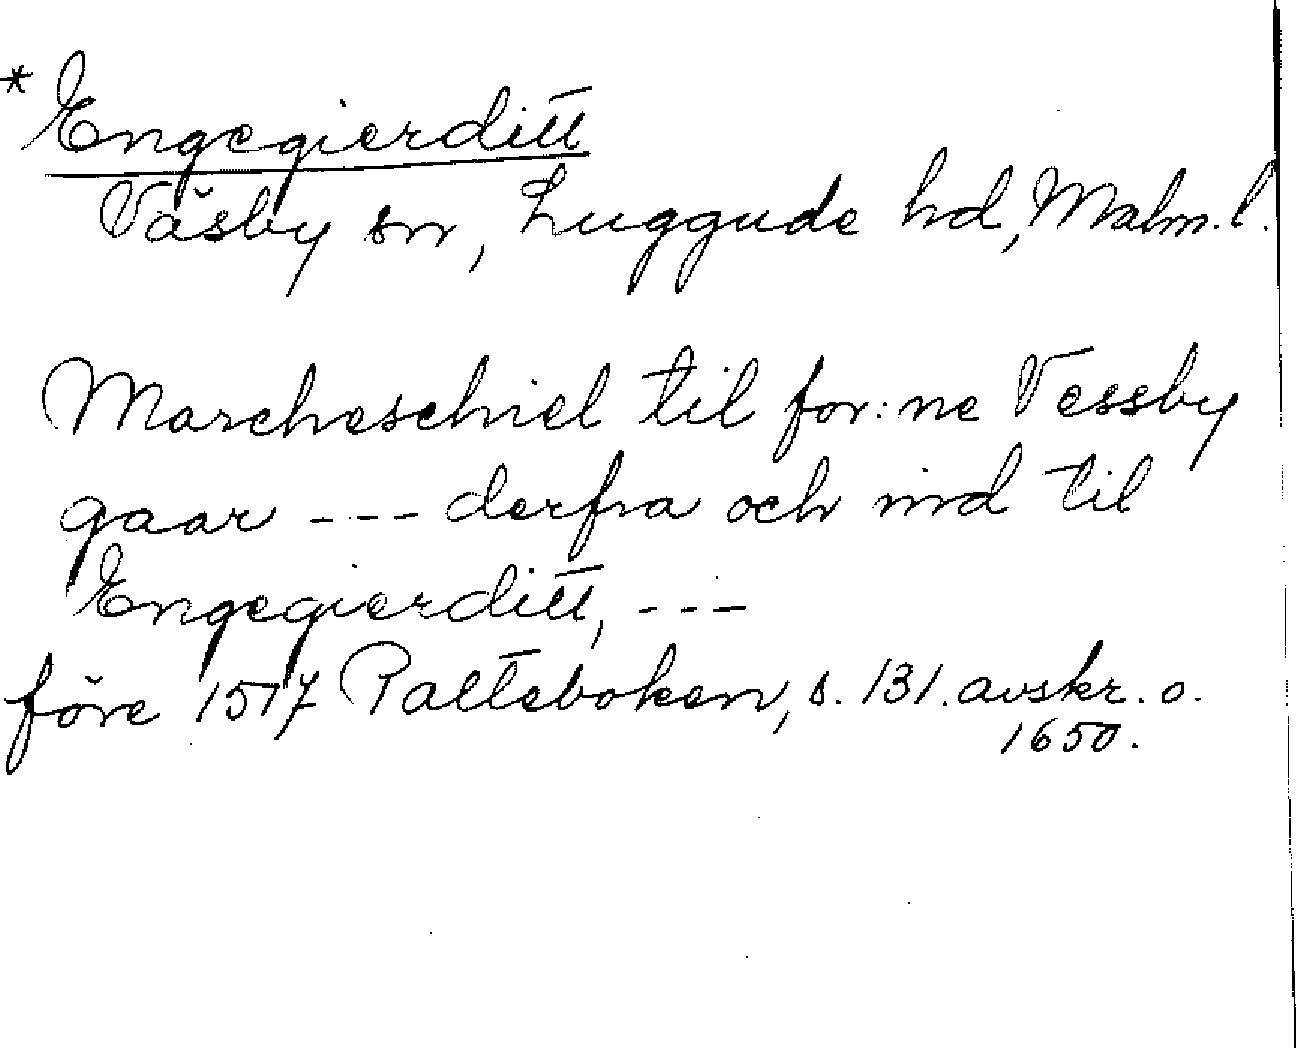 * Engegierditt
Väsby sn, Luggude hd, Malm. l.
Marcheschiel til for:ne Vessby
gaar --- derfra och ind til
Engegierditt, ---
före 1517 Palteboken, s. 131. avskr. o.
1650.